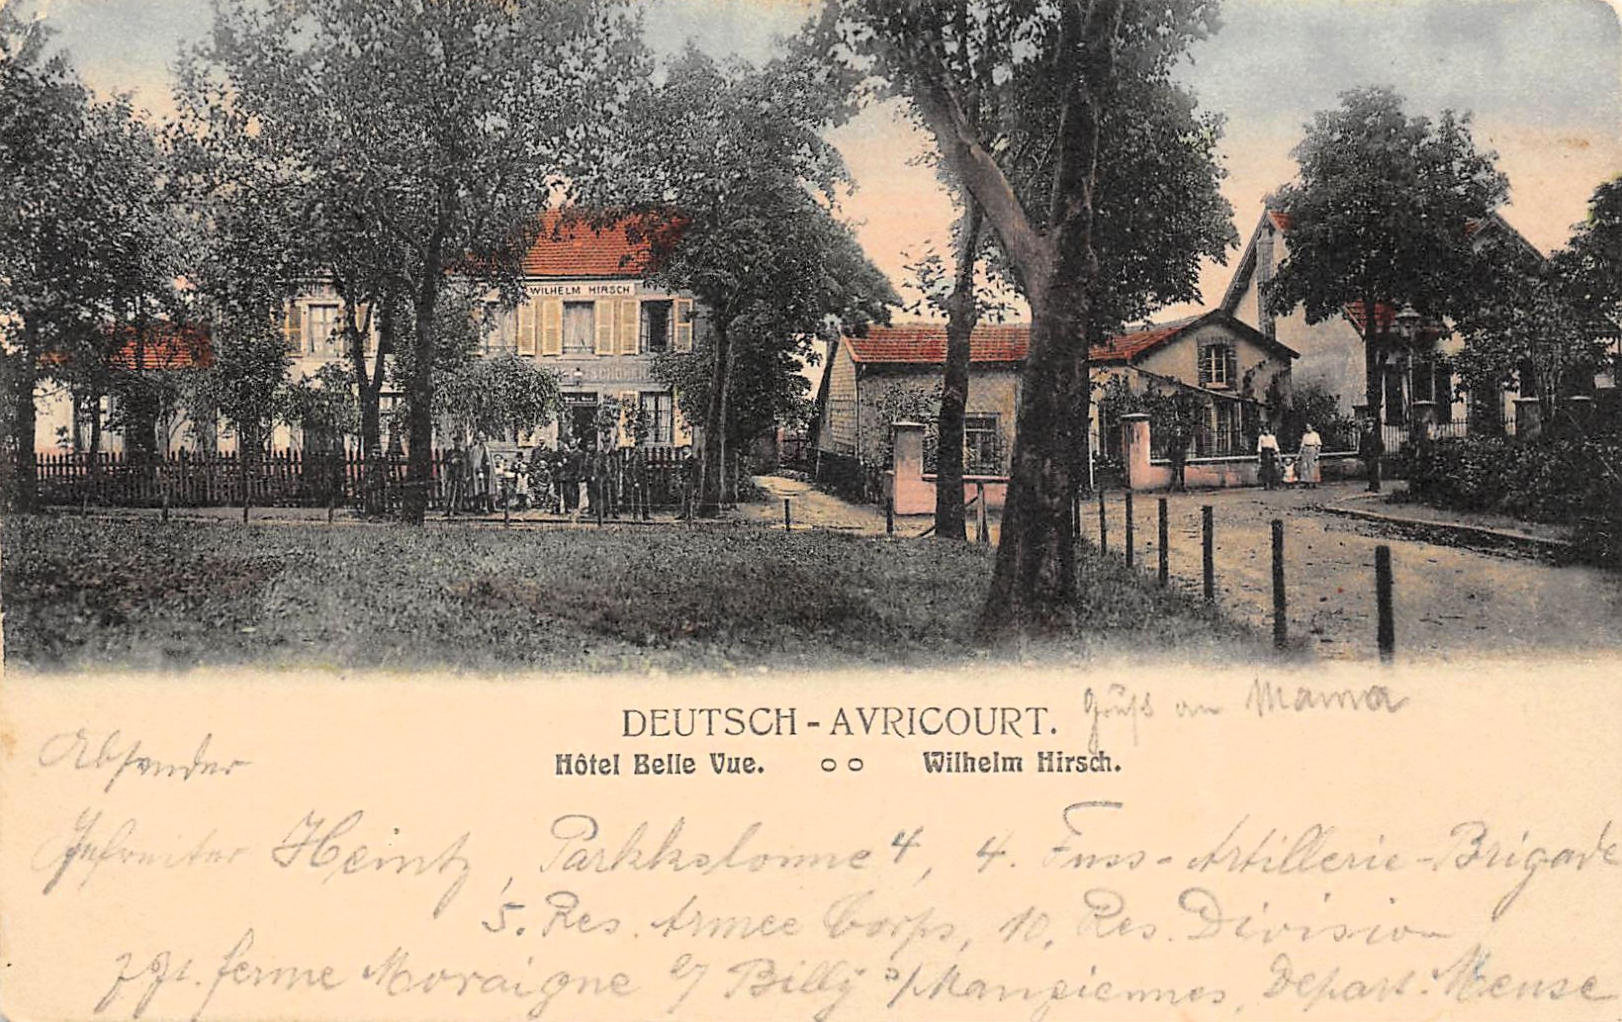 WILHELM HIRSCH
DEUTSCH-AVRICOURT.
Gruß an Mama
Hôtel Belle Vue. o o Wilhelm Hirsch.
Absender
Gefreiter Heintz, Parkkolonne 4, 4. Fuss-Artillerie-Brigade
5. Res. Armee Corps, 10. Res. Division
zzt. ferme Moraigne Billy s/Mangiennes, Depart. Meuse